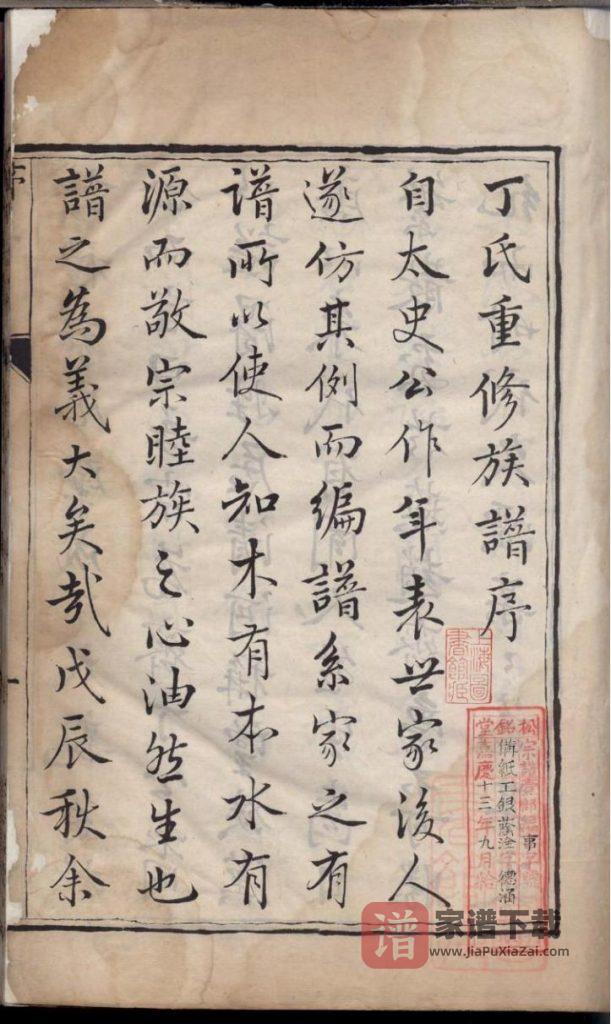 丁氏重修族譜序
自太史公作年表世家後人
遂仿其例而編譜系家之有
譜所以使人知木有本水有
源而敬宗睦族之心油然生也
譜之為義大矣哉戊辰秋余
上海圖書館藏
備紙工銀
慶十三年九月
家谱下载
www.JiaPuXiaZai.com
谱